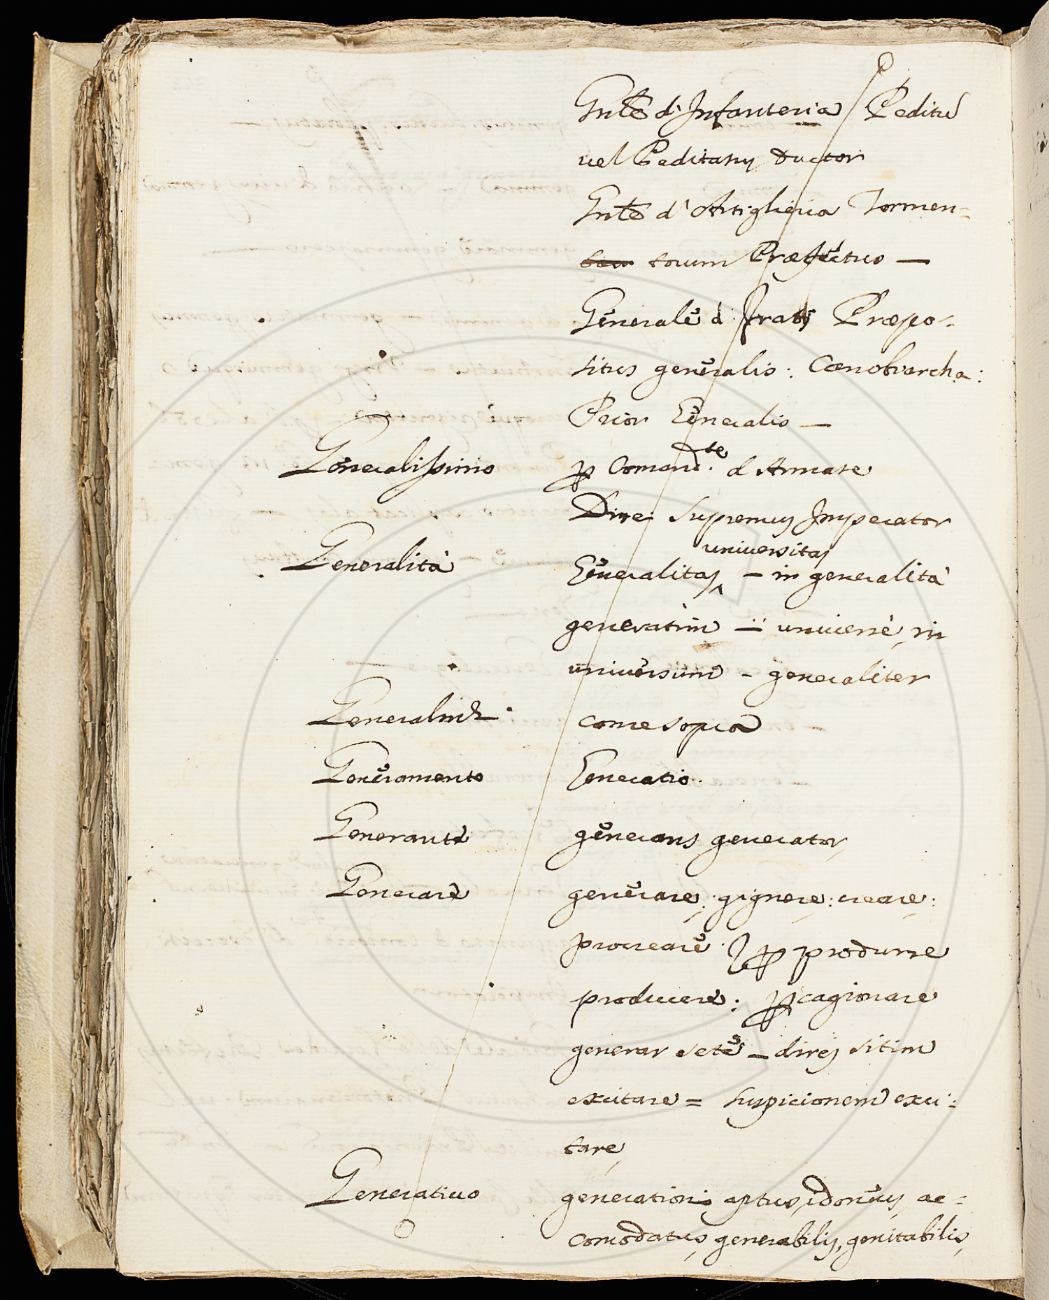 Gnle di Infanteria Peditũ
vel Peditarij Ductor
Gnle d'Artiglieria Tormen-
torum Præfectus —
Generale d. frati Præpo-
situs generalis: Cœnobiarcha:
Prior Generalis —
Generalissimo p Comandte. d'Armate
Direi Supremus Imperator
universitas
Generalità Generalitas – in generalità
generatim – universè, in
universum – generaliter
Generalmte. come sopra
Generamento Generatio.
Generante generans generator,
Generare generare; gignere; creare;
procreare. p produrre
producere; p cagionare
generar sete – direi sitim
excitare = suspicionem exci-
tare,
Generativo generationi aptus, idoneus, ac-
comodatus, generabilis, genitabilis,